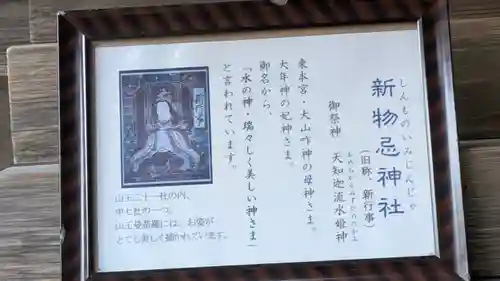 しんものいみじんじゃ
新物忌神社
(旧称、新行事)
御祭神
あめちかるみずひめのかみ
天知迦流水姫神
東本宮・大山咋神の母神さま。
大年神の妃神さま。
御名から、
「水の神・瑞々しく美しい神さま」
と言われています。
山王二十一社の内、
中七社の一つ。
山王曼荼羅には、お姿が
とても美しく描かれています。